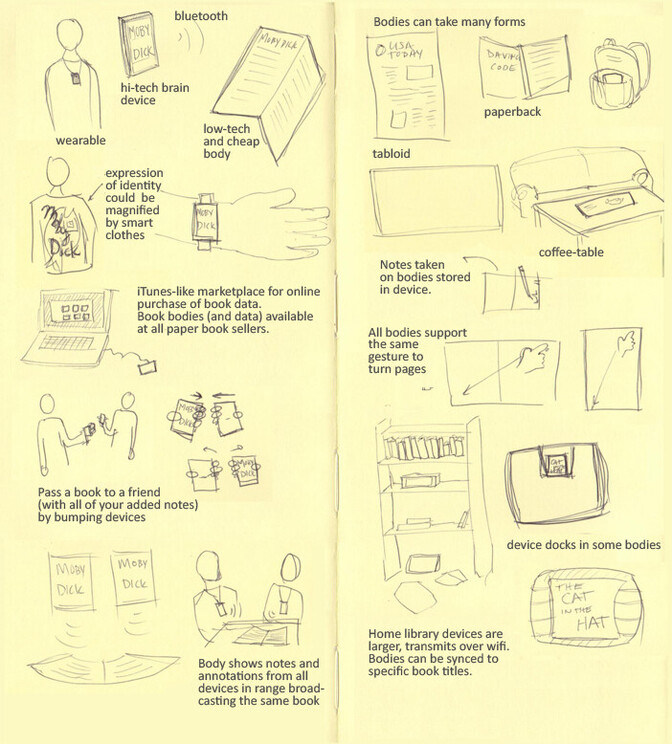 bluetooth
MOBY
DICK
hi-tech brain
device
wearable
MOBY DICK
low-tech
and cheap
body
expression
of identity
could be
magnified
by smart
clothes
Moby
Dick
MOBY
DICK
iTunes-like marketplace for online
purchase of book data.
Book bodies (and data) available
at all paper book sellers.
MOBY
DICK
MOBY
DICK
Pass a book to a friend
(with all of your added notes)
by bumping devices
MOBY
DICK
MOBY
DICK
Body shows notes and
annotations from all
devices in range broad-
casting the same book
Bodies can take many forms
USA
TODAY
DAVINCI
CODE
paperback
tabloid
coffee-table
Notes taken
on bodies stored
in device.
All bodies support
the same
gesture to
turn pages
CAT
HAT
device docks in some bodies
THE
CAT
IN THE
HAT
Home library devices are
larger, transmits over wifi.
Bodies can be synced to
specific book titles.